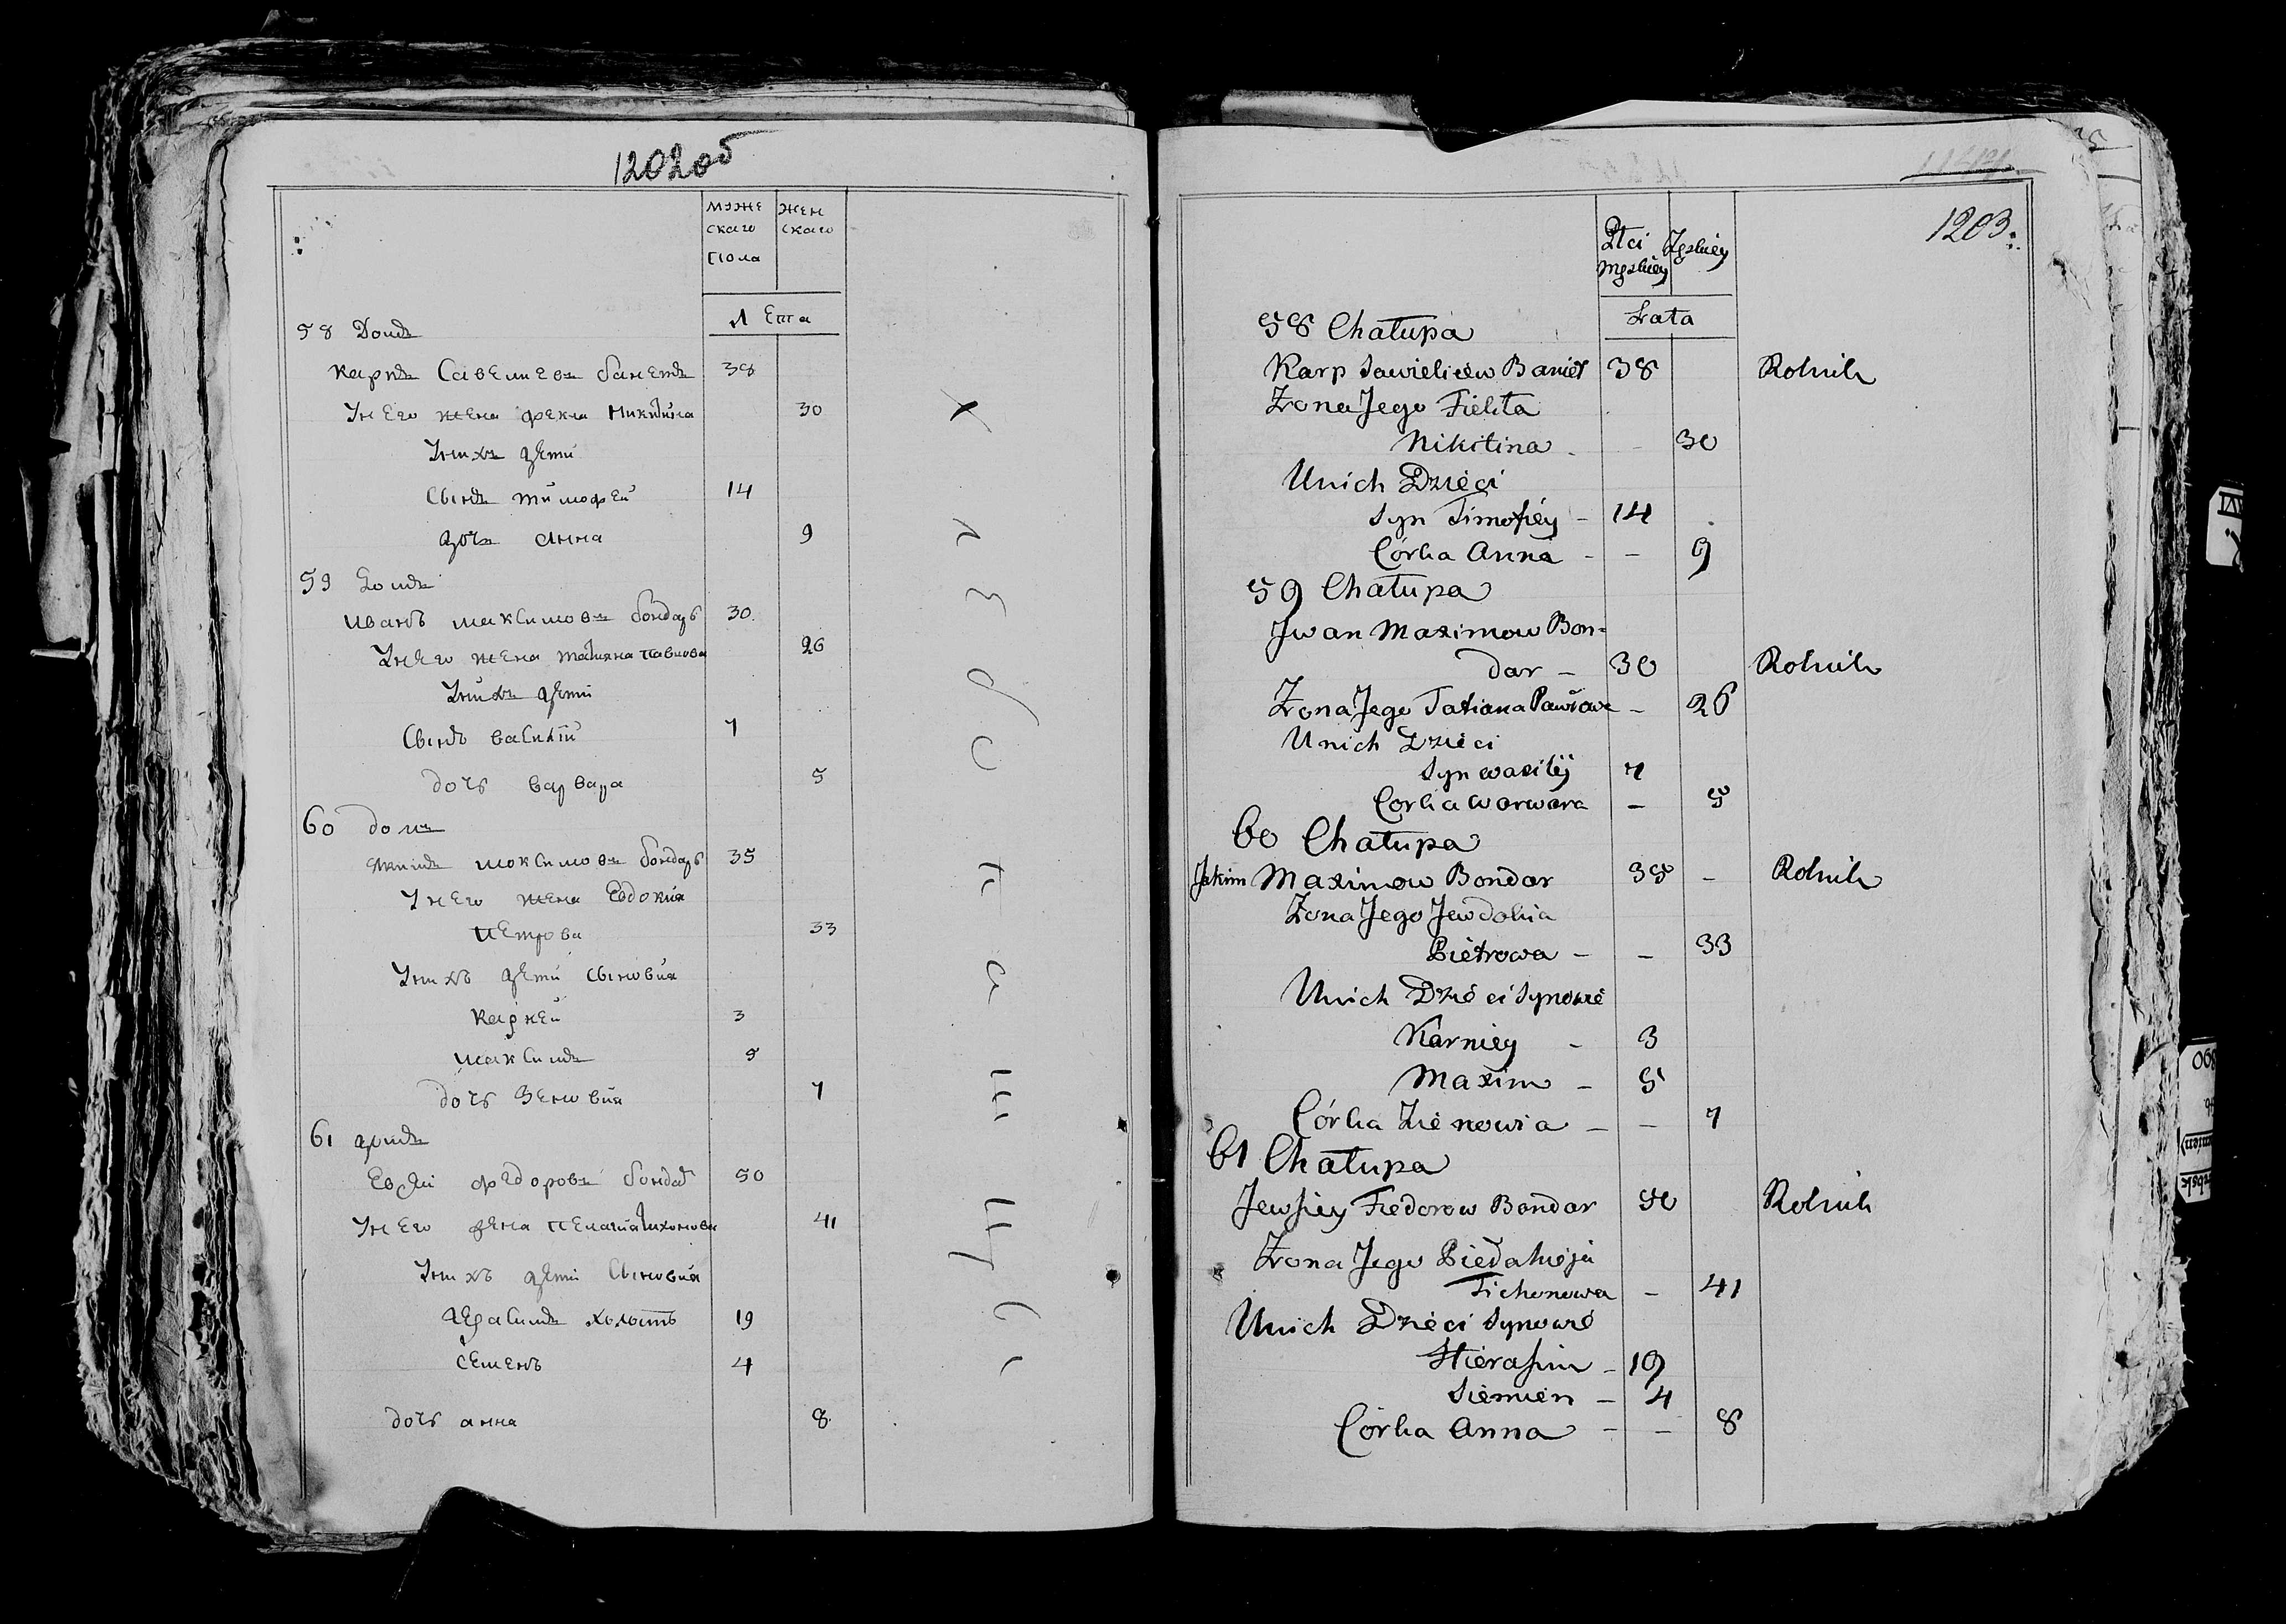 1202об
муже
скаго
пола
жен
скаго
Лета
58 Домъ
Карпъ Савелиевъ Банетъ 38
Унего жена Фекла Никитина 30
Унихъ дети
Сынъ Тимофей 14
дочъ Анна 9
59 Домъ
Иванъ Максимовъ Бондарь 30
Унего жена Татияна Павлова 26
Унихъ дети
Сынъ Василий 7
дочь Варвара 5
60 домъ
Якимъ Максимовъ Бондарь 35
Унего жена Евдокия
Петрова 33
Унихъ дети Сыновия
Карней 3
Максимъ 5
дочь Зеновия 7
61 домъ
Евсей Федоровъ Бондар 50
Унего жена Пелагия Тихонова 41
Унихъ дети Сыновия
Герасимъ холость 19
Семенъ 4
дочь анна 8
Х
л
з
о
с
т
а
ш
1203
Płci
męskiey
Żęskiey
Lata
58 Chałupa
Karp Sawieliew Banieł 38 Rolnik
Żona Jego Fiekła
Nikitina - 30
Unich Dzieci
Syn Timofiey - 14
Córka Anna - - 9
59 Chałupa
Jwan Maximow Bon=
dar - 30 Rolnik
Żona Jego Tatiana Pawłowa - 26
Unich Dzieci
Syn Wasilij 7
Corka Warwara - 5
60 Chałupa
Jakim Maximow Bondar 35 - Rolnik
Żona Jego Jewdokia
Pietrowa - - 33
Unich Dzieci Synowié
Karniey - 3
Maxim - 5
Córka Zienowia - - 7
61 Chałupa
Jewsiey Fiedorow Bondar 50 Rolnik
Żona Jego
Tichonowa - 41
Unich Dzieci Synowié
Hierasim - 19
Siemien - 4
Córka Anna - - 8